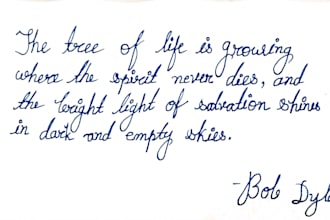 The tree of life is growing
where the spirit never dies, and
the bright light of salvation shines
in dark and empty skies.
-Bob Dyl